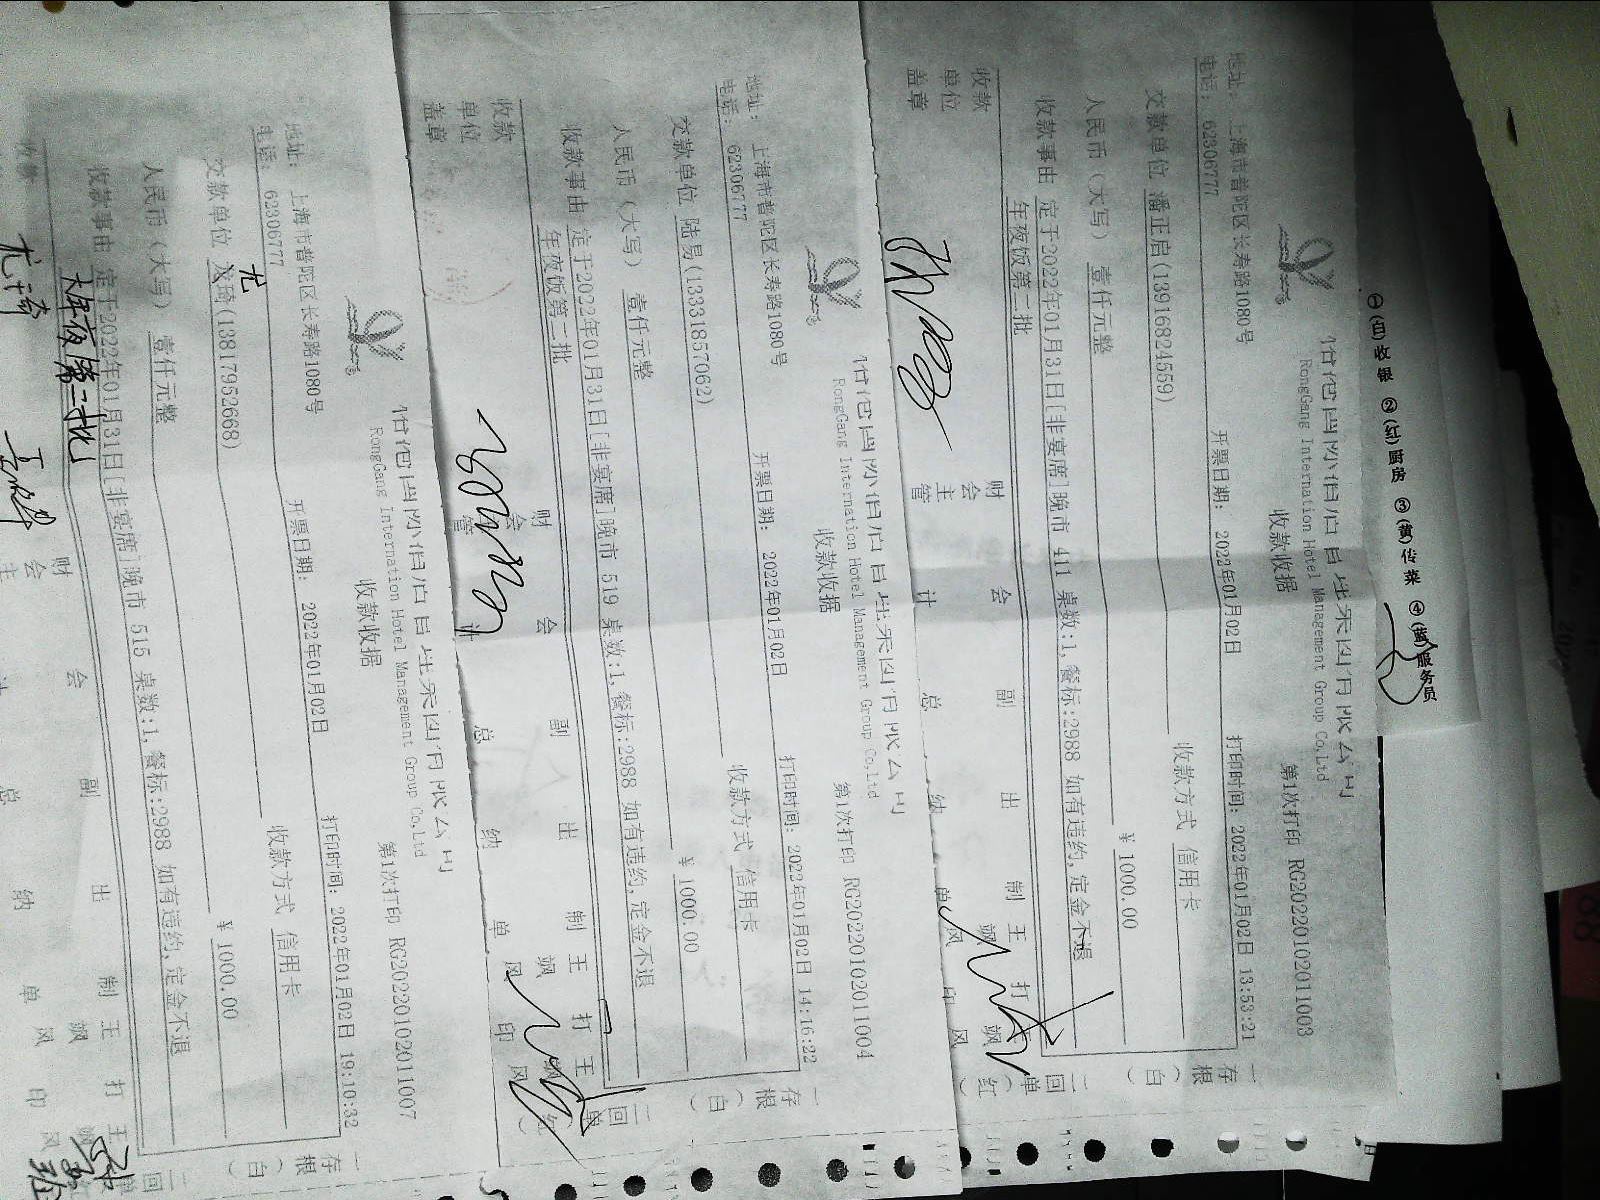 ①(白)收银 ②(红)厨房 ③(黄)传菜 ④(蓝)服务员
RongGang International Hotel Management Group Co.Ltd
收款收据 第1次打印 RG20220102011003
地址: 上海市普陀区长寿路1080号
电话: 62306777 开票日期: 2022年01月02日 打印时间: 2022年01月02日 13:53:21
交款单位 潘正启(13916824559) 收款方式 信用卡
人民币(大写) 壹仟元整 ¥ 1000.00
收款事由 定于2022年01月31日[非宴席]晚市 411 桌数:1,餐标:2988 如有违约,定金不退
年夜饭第二批
收款单位盖章 财会主管 会计 副总 出纳 制单 王飒风 打印 王飒风
一存根(白) 二回单(红)
RongGang International Hotel Management Group Co.Ltd
收款收据 第1次打印 RG20220102011004
地址: 上海市普陀区长寿路1080号
电话: 62306777 开票日期: 2022年01月02日 打印时间: 2022年01月02日 14:16:22
交款单位 陆易(13331857062) 收款方式 信用卡
人民币(大写) 壹仟元整 ¥ 1000.00
收款事由 定于2022年01月31日[非宴席]晚市 519 桌数:1,餐标:2988 如有违约,定金不退
年夜饭第二批
收款单位盖章 财会主管 会计 副总 出纳 制单 王飒风 打印 王飒风
一存根(白) 二回单(红)
RongGang International Hotel Management Group Co.Ltd
收款收据 第1次打印 RG20220102011007
地址: 上海市普陀区长寿路1080号
电话: 62306777 开票日期: 2022年01月02日 打印时间: 2022年01月02日 19:10:32
尤
交款单位 琦(13817952668) 收款方式 信用卡
人民币(大写) 壹仟元整 ¥ 1000.00
收款事由 定于2022年01月31日[非宴席]晚市 515 桌数:1,餐标:2988 如有违约,定金不退
年夜饭第二批
收款 财会主 会计 副总 出纳 制单 王飒风 打印 王飒风
一存根(白) 二回单
尤琦